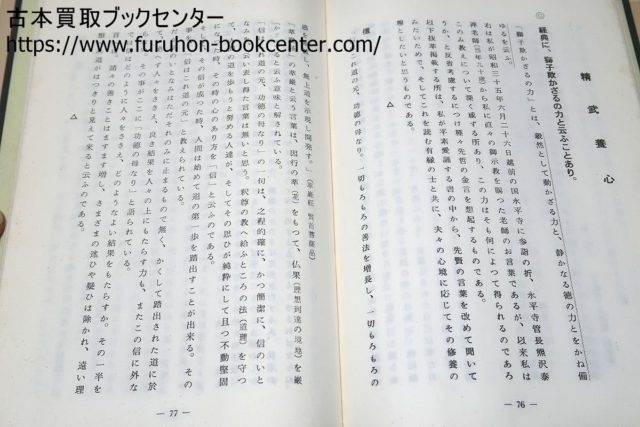 古本買取ブックセンター
https://www.furuhon-bookcenter.com/
精武養心
◎ 経典に、獅子欺かざるの力と云ふことあり。
「獅子欺かざるの力」とは、毅然として動かざる力と、静かなる徳の力とをかね備
ゆるを云ふ。
右は私が昭和三十五年六月二十六日越前の国永平寺に参詣の折、永平寺管長熊沢泰
禅老師(当年九十才)から私に直々の御示教を賜った老師のお言葉であるが、以来私は
このみ教えについて深く感ずる所あり、この力はそも何によつて得られるのであろ
うか、と反省考慮するにつけ種々先哲の金言を想起するものである。
以下抜萃掲載する所は、私が平素愛誦する書の中から、先賢の言葉を改めて聞いて
みたいためで、これを読む有縁の士と共に、夫々の心境に応じてその修養の
糧としたいと思うものである。
△
信は道の元、功徳の母なり。一切もろもろの善法を増長し、一切もろもろの
— 76 —
惑を除滅して、無上道を示現し開発す。」(華厳経 賢首菩薩品)
「華厳」の華厳と云ふ言葉は、因行の華(花)をもつて、仏果(理想到達の境地)を厳
かるものと云ふ意味と解されている。
「信は道の元、功徳の母なり」の一句は、之程的確に、かつ簡潔に、信のいと
なみを云い表し得た言葉は無いと思う。釈尊の教へ給ふところの法(道理)を守つ
てその道を歩もうと努める人達が、そしてその思ひが純粋にして且つ不動堅固
になつた時、その時の心のあり方を「信」と云ふのである。
その信が成つた時、人間は始めて道の第一歩を踏出すことが出来る。その
事を「信はこれ道の元」と教えられているのである。
信のいとなみはただそれのみに止まるもので無く、かくして踏出された道に於
て人々をささえ、良き結果を人々の上にもたらす力も、またこの信に外な
らない。そのことがここに「功徳の母なり」と語られている。
信はどのように人々をささえ、どのようなよい結果をもたらすか。その一半を
云えば、諸々の善きことはますます増し、さまざまの迷ひや疑ひは除かれ、遠い理
想への道がはつきりと見えて来ると云ふのである。
△
— 77 —